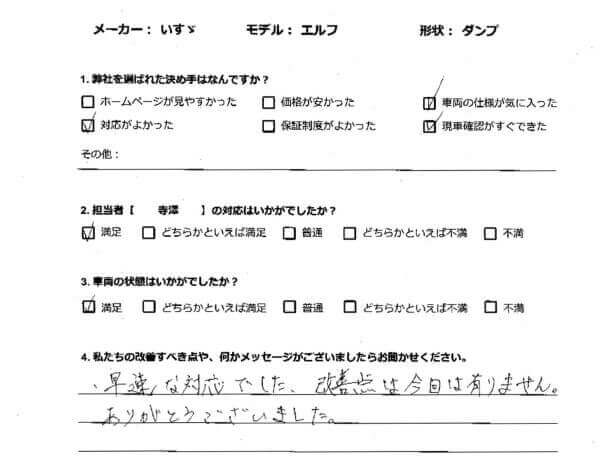 メーカー： いすゞ モデル： エルフ 形状： ダンプ
1. 弊社を選ばれた決め手はなんですか？
□ ホームページが見やすかった □ 価格が安かった ☑ 車両の仕様が気に入った
☑ 対応がよかった □ 保証制度がよかった ☑ 現車確認がすぐできた
その他：
2. 担当者【 寺澤 】の対応はいかがでしたか？
☑ 満足 □ どちらかといえば満足 □ 普通 □ どちらかといえば不満 □ 不満
3. 車両の状態はいかがでしたか？
☑ 満足 □ どちらかといえば満足 □ 普通 □ どちらかといえば不満 □ 不満
4. 私たちの改善すべき点や、何かメッセージがございましたらお聞かせください。
・早速な対応でした、改善点は今回は有りません。
ありがとうございました。